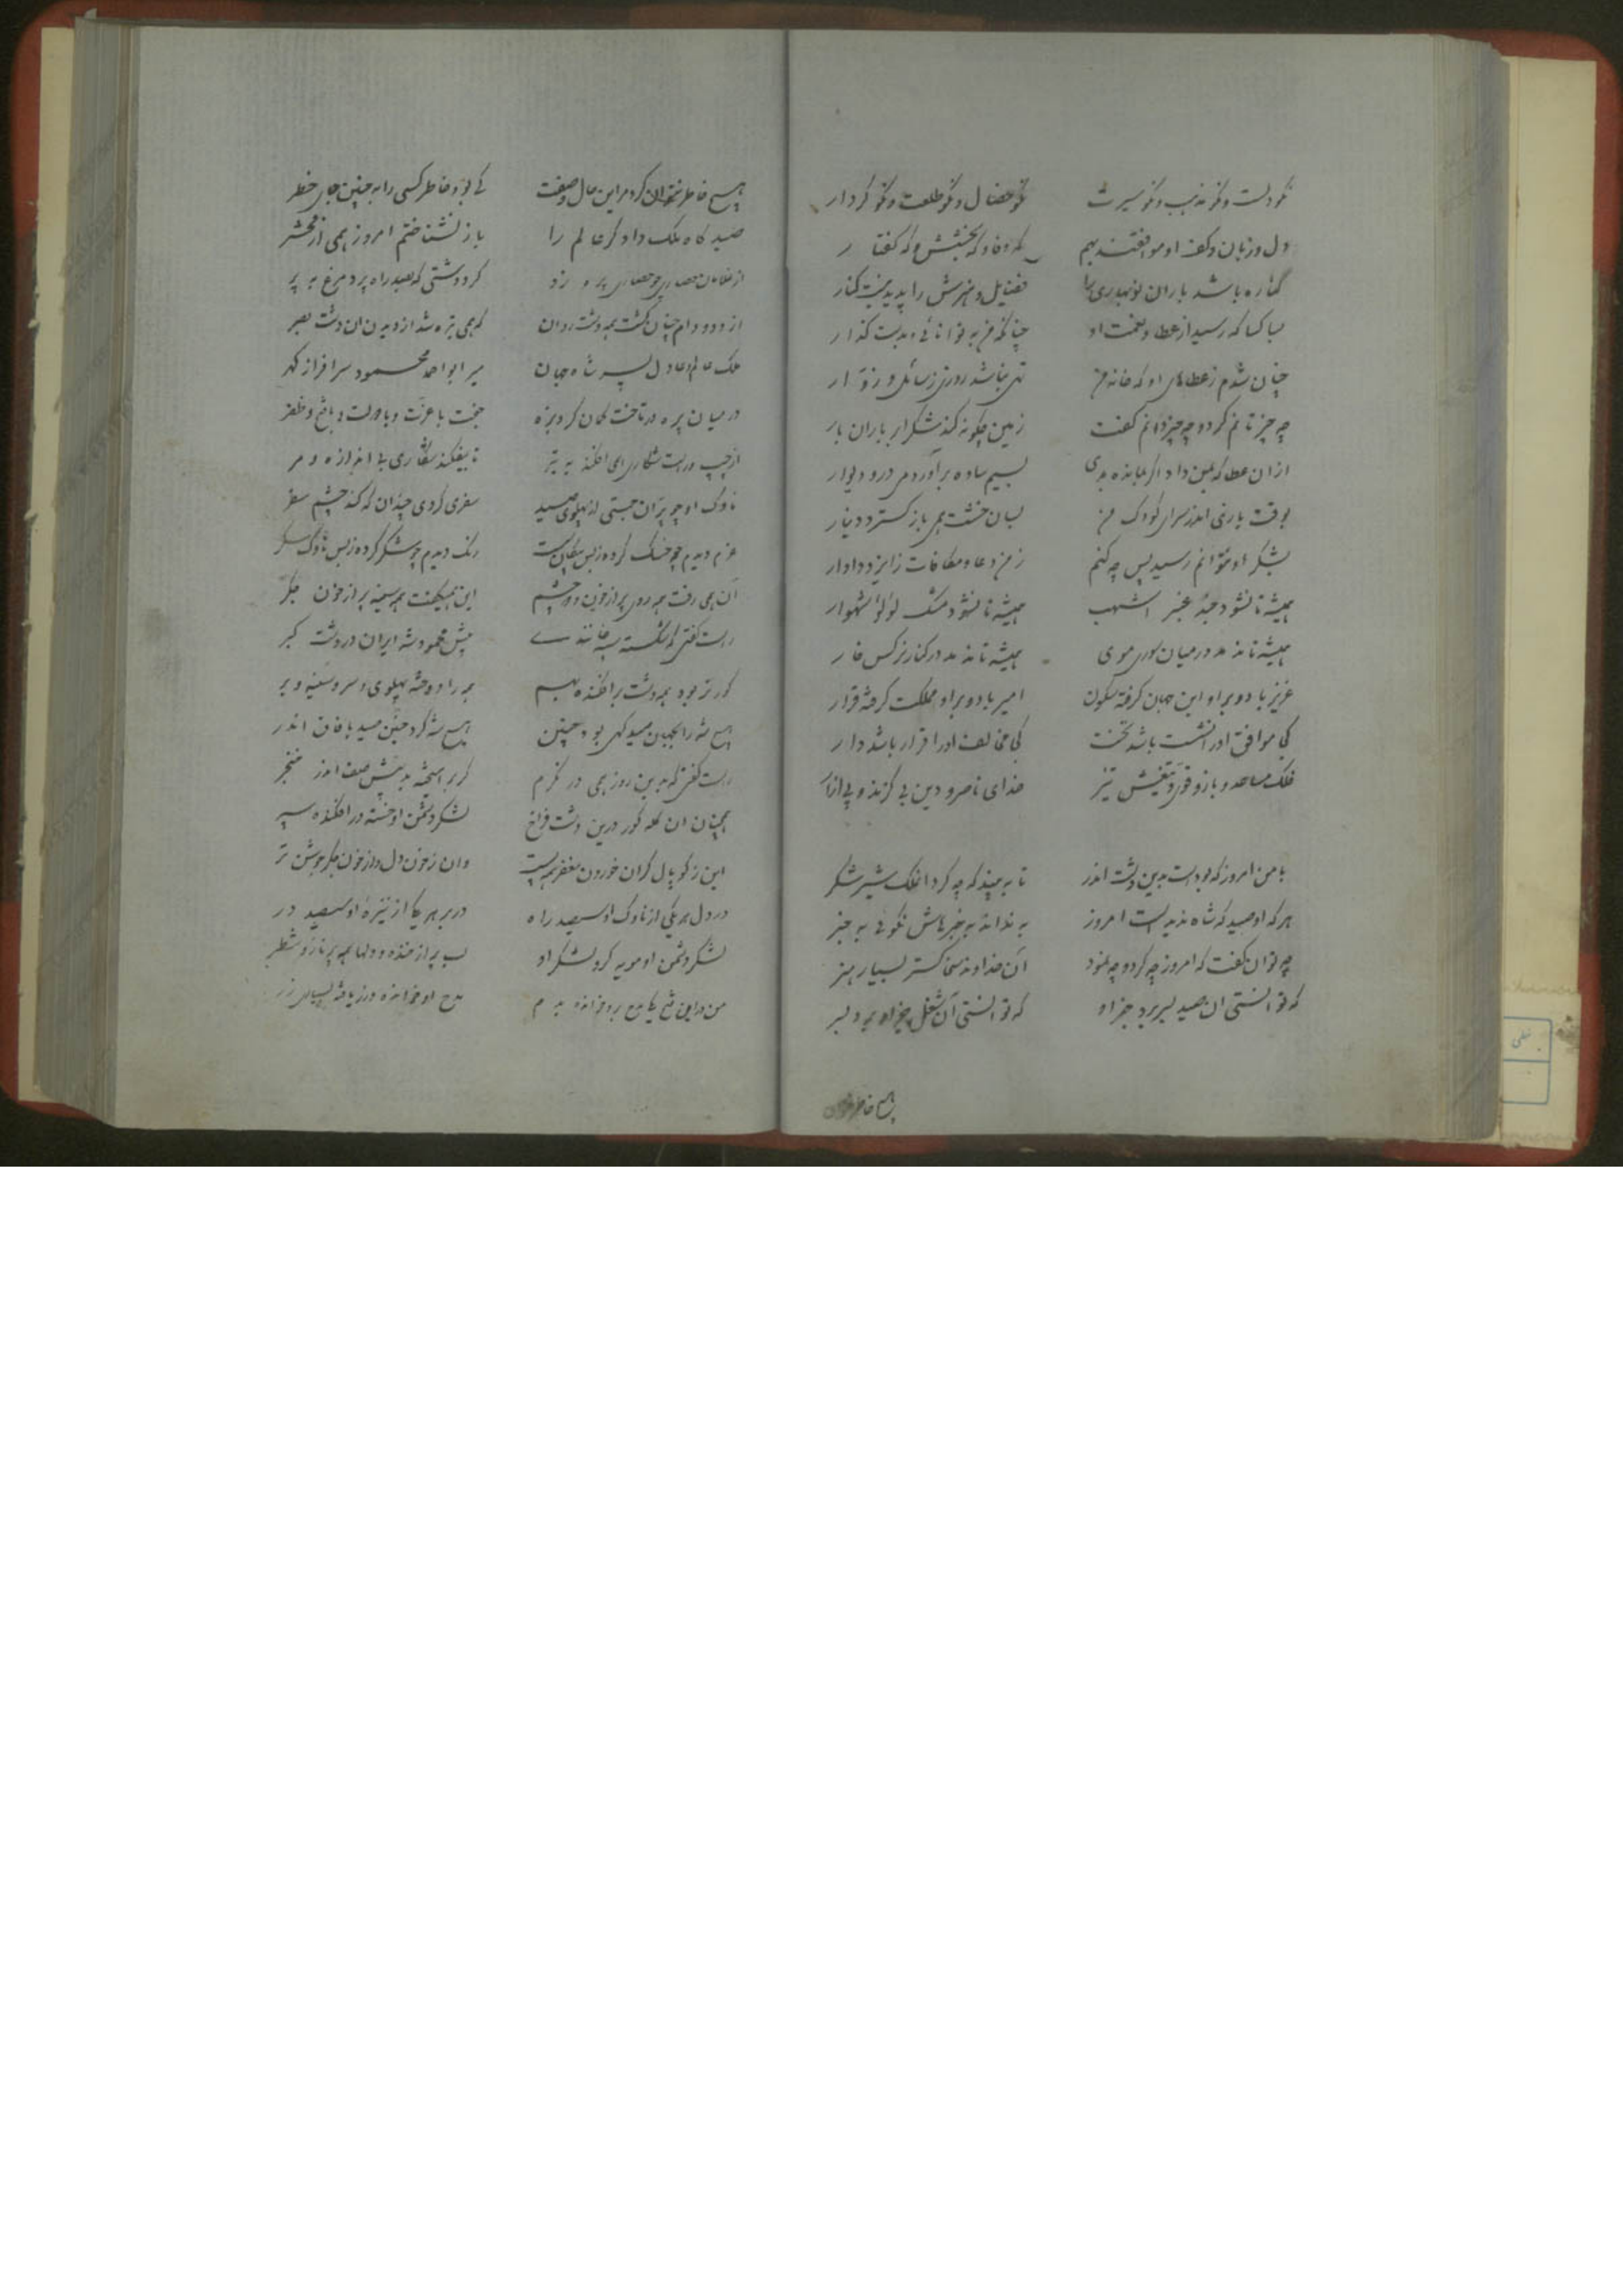 نکو دلست و نکو مذهب و نکو سیرت نکو خصال و نکو طلعت و نکو کردار
دل و زبان و کف او موافقند بهم که وفا و که بخشش و که گفتار
کناره باشد باران نوبهاری را فضایل و هنرش را پدید نیست کنار
بسا کسا که رسید از عطا و نعمت او چنانکه من به توانائی و بدست گذار
چنان شدم ز عطاهای او که خانه من تهی نباشد روزی ز سائل و زوار
چه چیز تانم کرد و چه چیز دانم گفت زمین چگونه کند شکر ابر باران بار
ازان عطا که بمن داد اگر بمانده بدی بسیم ساده برآوردمی در و دیوار
بوقت بازی اندر سرای کودک من بسان خشت همی باز گسترد دینار
بشکر او نتوانم رسید پس چه کنم ز من دعا و مکافات ز ایزد دادار
همیشه تا نشود جبه عنبر اشهب همیشه تا نشود مشک لؤلؤ شهوار
همیشه تا ندمد در میان موی همیشه تا ندمد در کنار نرگس خار
عزیز باد و بر او این جهان گرفته سکون امیر باد و بر او مملکت گرفته قرار
کی موافق او را نشست باشد تخت کی مخالف او را قرار باشد دار
فلک مساعد و بازو قوی و تیغش تیز خدای ناصر و دین بی گزند و بی آزار
با من امروز که بودست بدین دشت اندر تا به بیند که چه کرد آن ملک شیر شکر
هر که او صید که شاه ندیدست امروز به نداند به خبرهاش نکوئی به خبر
چه توان گفت که امروز چه کرد و چه نمود آن خداوند سخن گستر بسیار هنر
که توانستی ان صید بسر برد جز او که توانستی آن شغل جز او برد بسر
هیچ خاطر نتوان
هیچ خاطر نتوان کرد مر این حال صفت کی بود خاطر کسی را به چنین جای خطر
صید گاه ملک دادگر عالم را باز نشناختم امروز همی از محشر
کرد دشتی که بصد راه پرد مرغ به پر
از دد و دام چنان گشت همه دشت روان که همی تیره شد از دیدن ان دشت بصر
ملک عالم عادل پسر شاه جهان میر ابو احمد محمود سرافراز گهر
در میان پره در تاخت کمان کرد بزه جفت با عزت و با دولت و با فتح و ظفر
از چپ و راست شکاری همی افکند به تیر تا بیفکند شکاری بی اندازه و مر
ناوک او چو پران جستی از پهلوی صید سفری کردی چندان که کند چشم سفر
غرم دیدم چو خسک کرده ز بس پیکان پشت رنگ دیدم چو شکر کرده ز بس ناوک
آن همی رفت همه روی پر از خون دو چشم این همیگفت همه سینه پر از خون جگر
راست گفتی که شکسته سپه خاندی پیش محمود شه ایران در دشت کبر
گور تر بود همه دشت برافکنده بهم همه را دوخته پهلوی و سر و سینه و بر
هیچ شه را بجهان صید گهی بود چنین هیچ شه کرد چنین صید بافاق اندر
راست گفتی که بدین روز همی در نگرم که برآهیخته بد پیش صف اندر خنجر
همچنان ان گله گور درین دشت فراخ لشکر دشمن او خسته درافکنده سپر
این ز گوپال گران خوردن مغفر همه پست وان ز خون دل و از خون جگر جوشن تر
در دل هر یکی از ناوک او سیصد راه در بر هر یکی از نیزهٔ او سیصد در
لشکر دشمن او مویه گر و لشکر او لب پر از خنده و دلها همه پر ناز و بطر
من در این فتح یکی مدح برو خوانده بدم مدح او خوانده و زر یافته بسیار